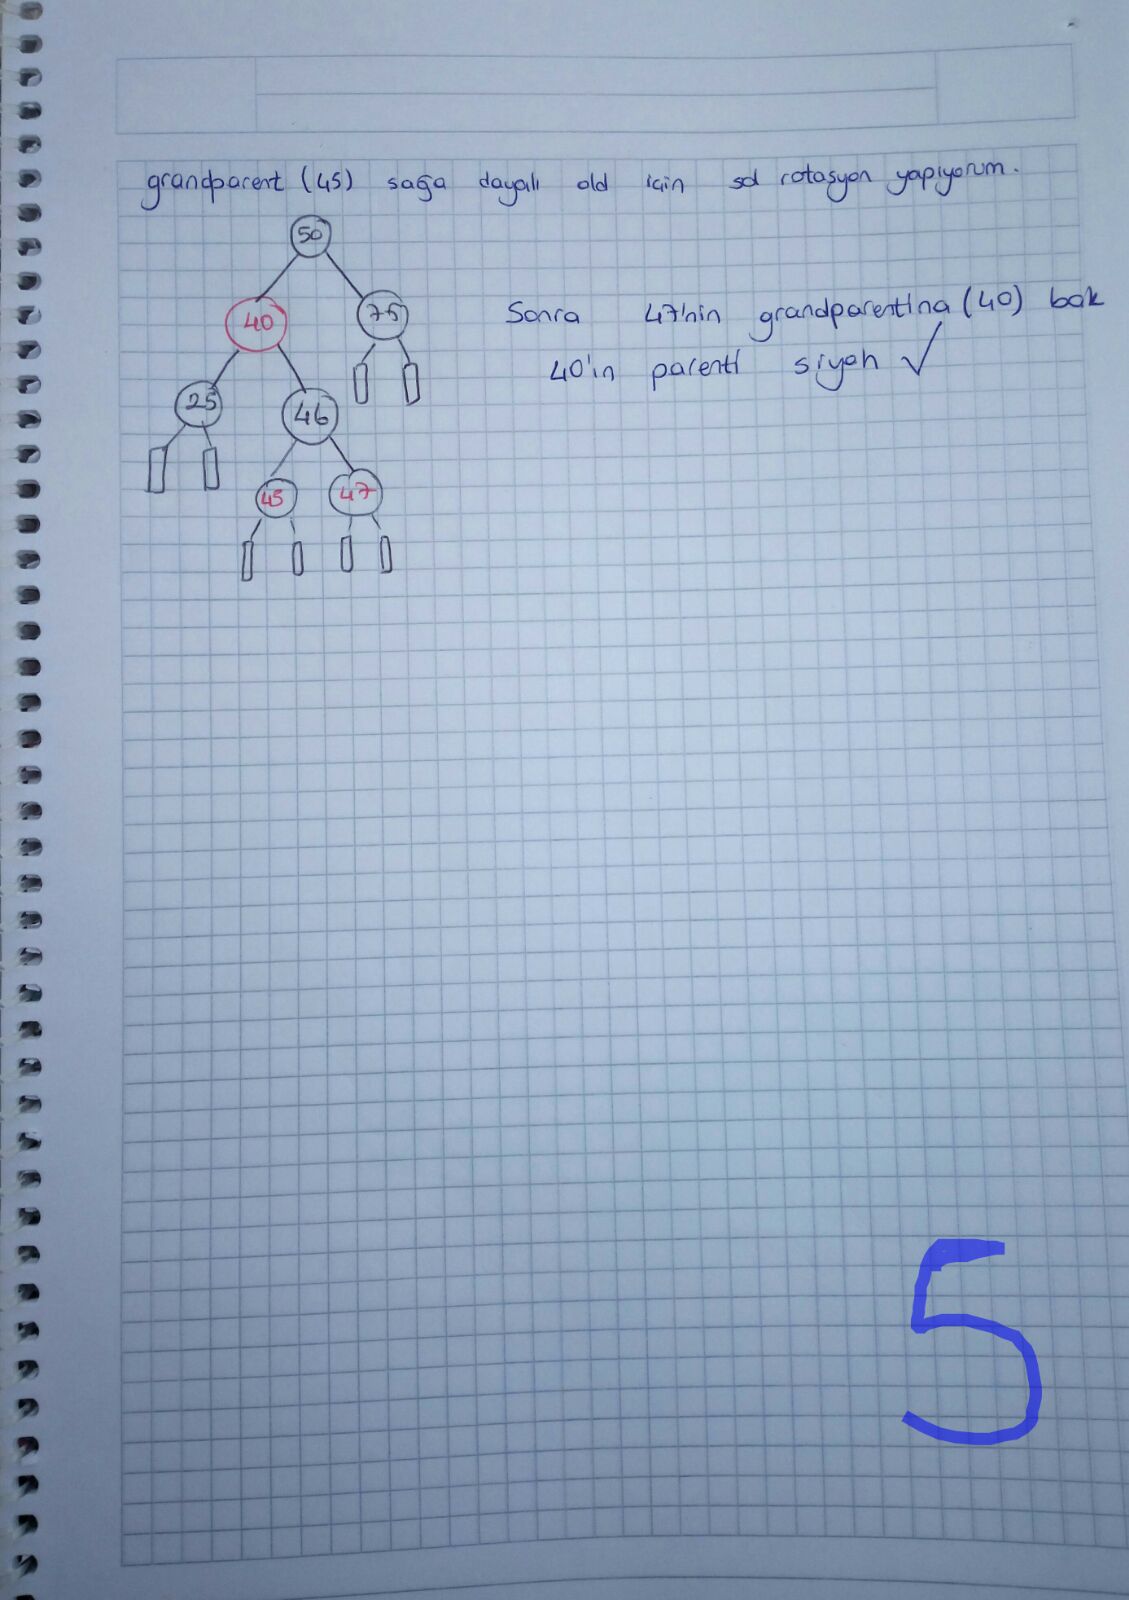 grandparent (45) sağa dayalı old için sol rotasyon yapıyorum.
50
40 75
Sonra 47'nin grandparentina (40) bak
40'ın parenti siyah ✓
25 46
45 47
5